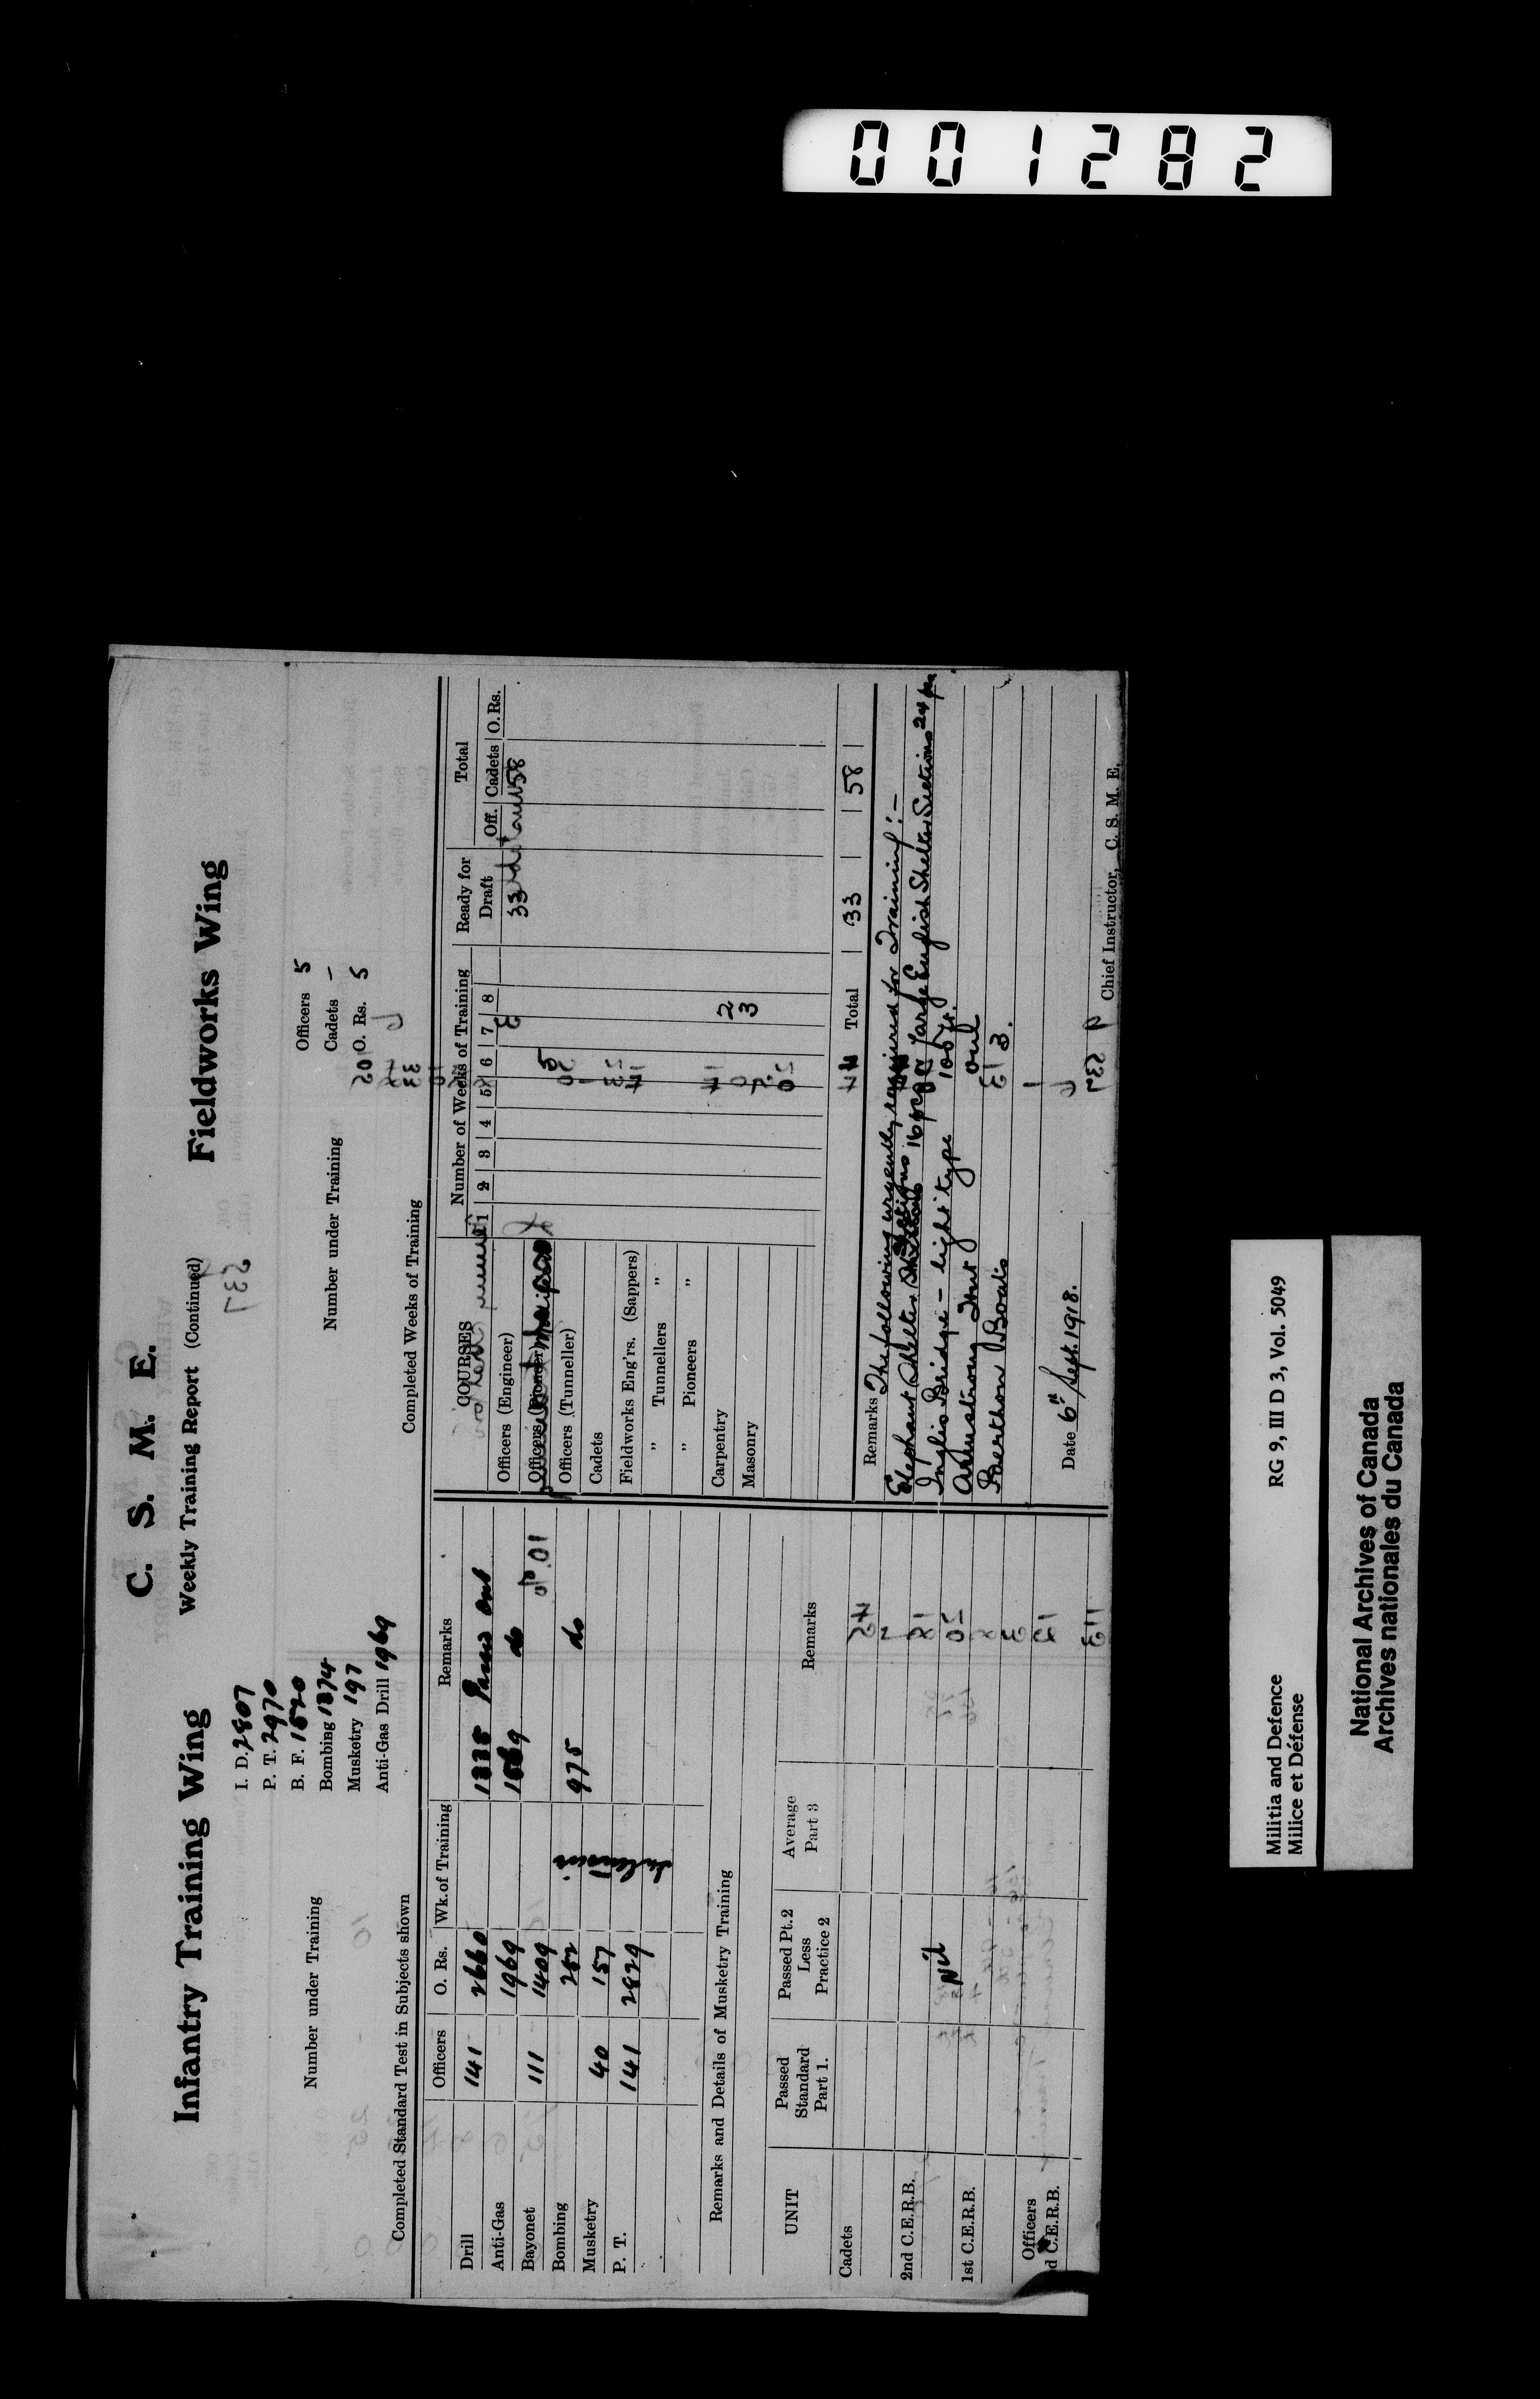 001282
C. S. M. E.
Weekly Training Report (Continued)
Infantry Training Wing
Number under Training
I. D. 2807
P. T. 2970
B. F. 1520
Bombing 1374
Musketry 197
Anti-Gas Drill 1969
Completed Standard Test in Subjects shown
Officers O. Rs. Wk. of Training Remarks
Drill 141 2660 1335 Pass out
Anti-Gas 1969 1569 do
Bayonet 111 1409
Bombing 252 975 do
Musketry 40 157
P. T. 141 2829
Remarks and Details of Musketry Training
UNIT Passed Standard Part 1. Passed Pt. 2 Less Practice 2 Average Part 3 Remarks
Cadets
2nd C.E.R.B.
Nil
1st C.E.R.B.
Officers
d C.E.R.B.
Fieldworks Wing
Number under Training
Officers 5
Cadets -
O. Rs. 5
Completed Weeks of Training
COURSES Number of Weeks of Training Ready for Draft Total
1 2 3 4 5 6 7 8 Off. Cadets O. Rs.
Officers (Engineer) 33 58
Officers (Pioneer)
Officers (Tunneller) 5
Cadets
Fieldworks Eng'rs. (Sappers)
„ Tunnellers „
„ Pioneers „
Carpentry 2
Masonry 3
Total 33 58
Remarks The following urgently required for Training:-
Elephant Shelter 16 pcs Large English Shelter Sections 24 pcs
Inglis Bridge - light type 105 ft.
Armstrong Hut one
Boats 3.
Date 6th Sept. 1918.
Chief Instructor, C. S. M. E.
Militia and Defence RG 9, III D 3, Vol. 5049
Milice et Défense
National Archives of Canada
Archives nationales du Canada